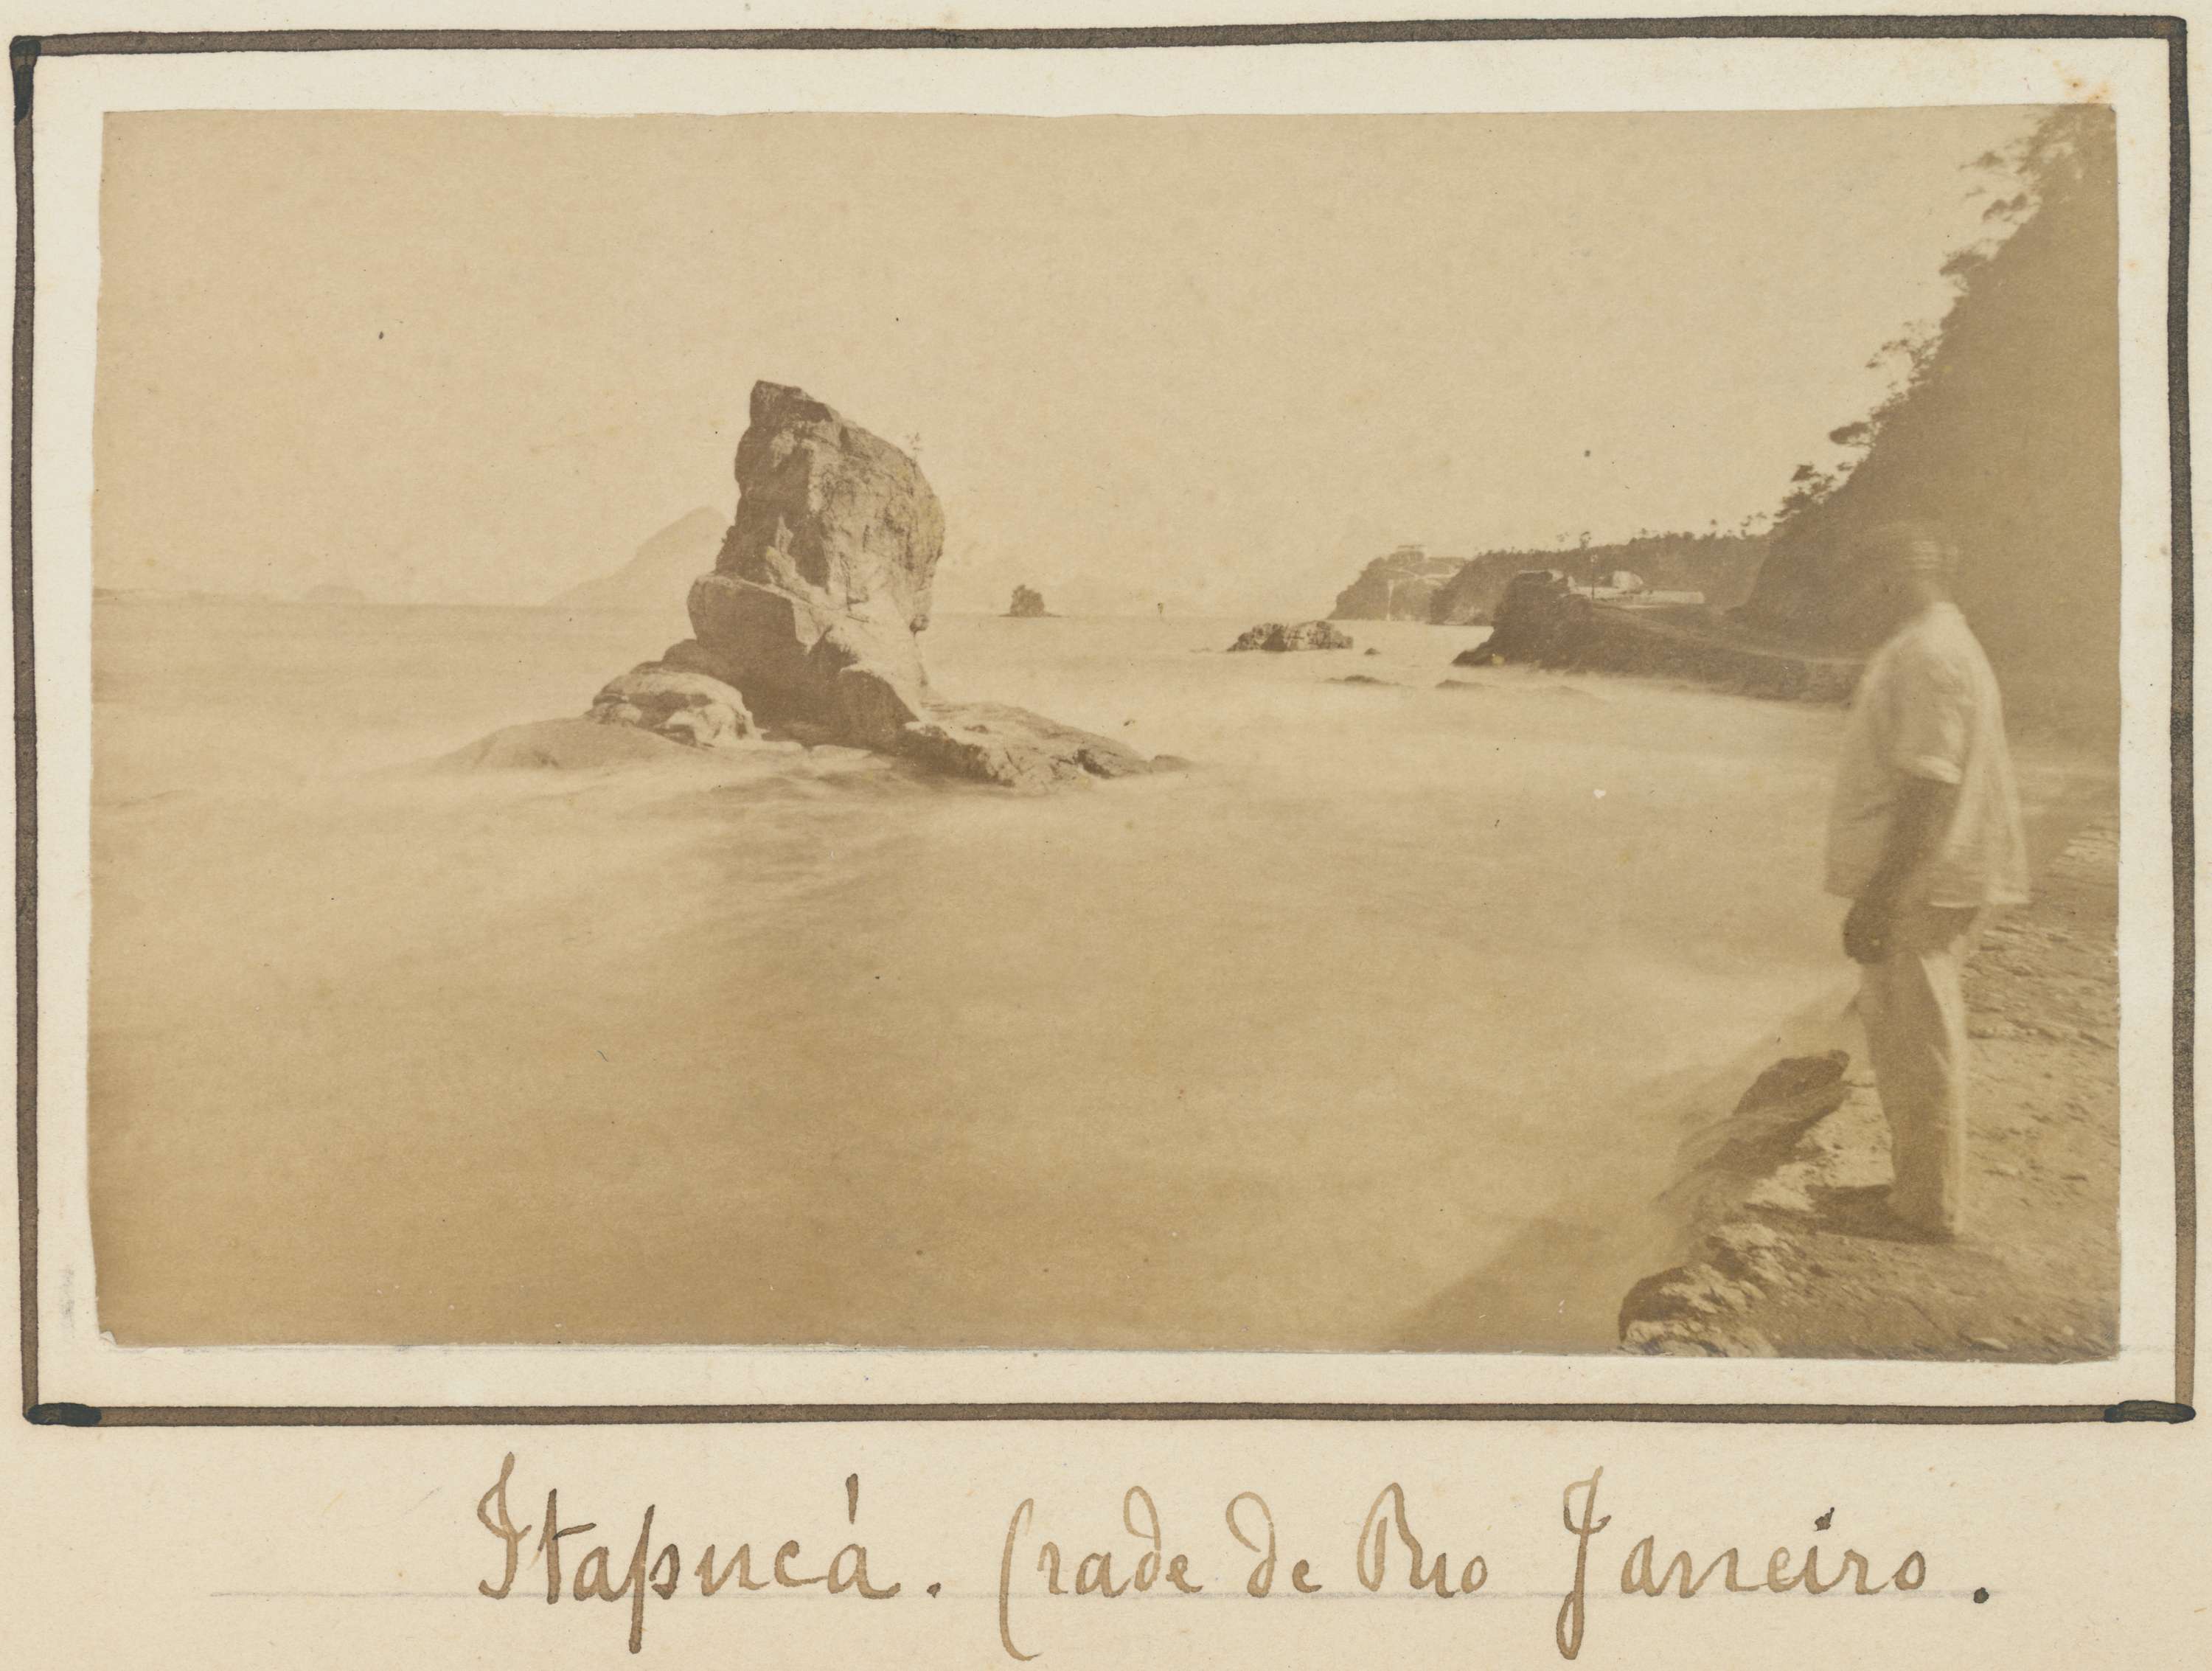 Itapucá. (rade de Rio Janeiro.